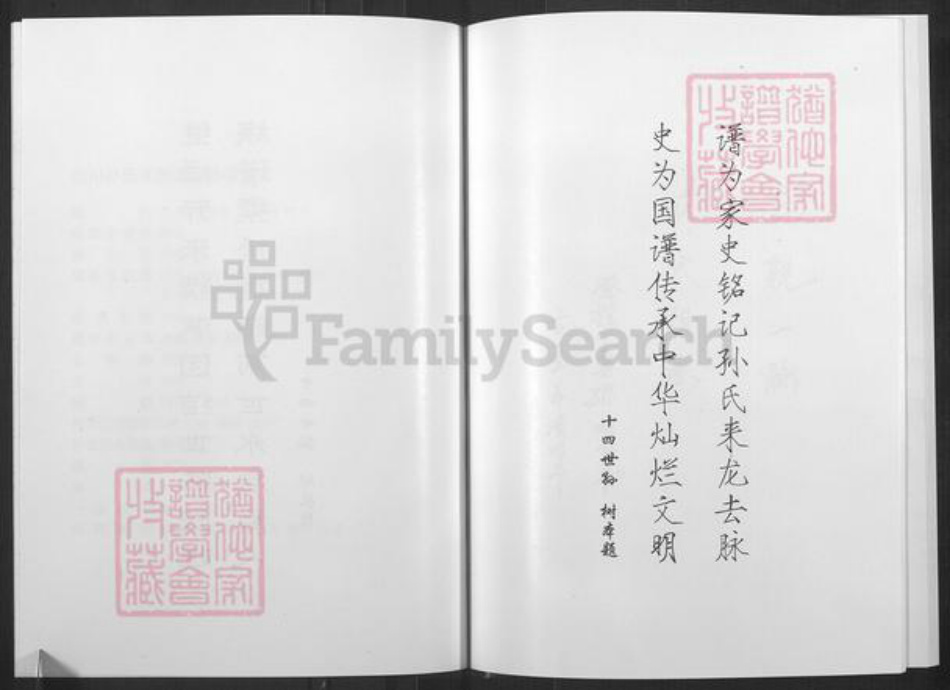 谱为家史铭记孙氏来龙去脉
史为国谱传承中华灿烂文明
十四世孙 树本题
猶他家
譜學會
收藏
猶他家
譜學會
收藏
FamilySearch